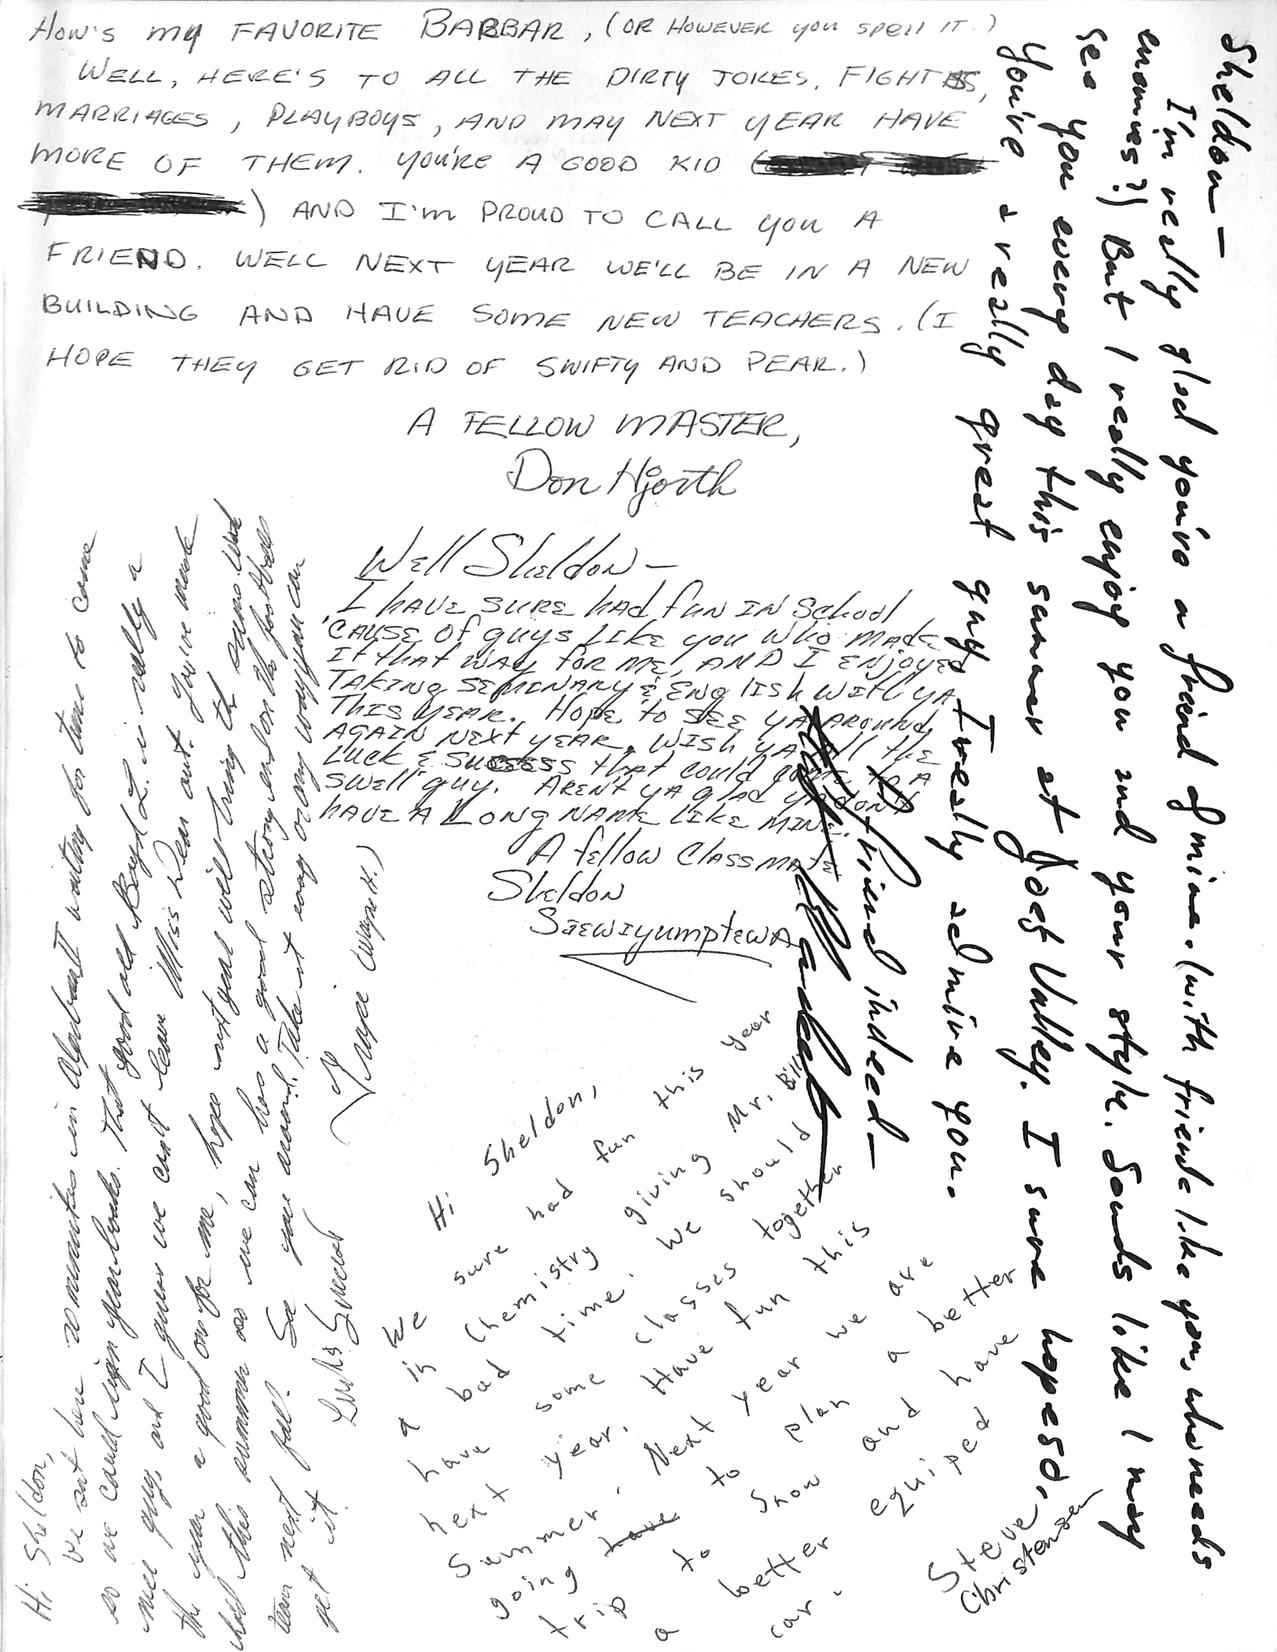 HOW'S MY FAVORITE BARBAR, (OR HOWEVER YOU SPELL IT.)
WELL, HERE'S TO ALL THE DIRTY JOKES, FIGHTS,
MARRIAGES, PLAYBOYS, AND MAY NEXT YEAR HAVE
MORE OF THEM. YOU'RE A GOOD KID (
) AND I'M PROUD TO CALL YOU A
FRIEND. WELL NEXT YEAR WE'LL BE IN A NEW
BUILDING AND HAVE SOME NEW TEACHERS. (I
HOPE THEY GET RID OF SWIFTY AND PEAR.)
A FELLOW MASTER,
Don Hjorth
Sheldon —
I'm really glad you're a friend of mine. (with friends like you, who needs
enamies?) But I really enjoy you and your style. Sounds like I may
see you every day this summer at Joes Valley. I sure hope so,
You're a really great guy I really admire you.
friend indeed —
Well Sheldon —
I HAVE SURE had fun IN School
'CAUSE OF guys LIKE you who made
It that way for ME, AND I ENJOYED
TAKING SEMINARY & ENGLISH WITH YA
THIS YEAR. HOPE to SEE YA AROUND
AGAIN NEXT YEAR. WISH YA all the
LUCK & SUCCESS that could come to A
SWELL guy. ARENT YA glad YA DON'T
HAVE A LONG NAME LIKE MINE.
A fellow CLASSMATE
Sheldon
SEEWIYUMPTEWA
Hi Sheldon,
We sat here 20 minutes in waiting for time to come
so we could sign yearbooks. That good old Boyd L. is really a
nice guy, and I guess we can't leave Miss Dean out. You've made
the year a good one for me, hope next year will bring the same. What
this summer so we can has a good strong on the football
team next fall. See you around. Take it easy or any way you can
get it.
Hi Sheldon,
We sure had fun this year
in Chemistry giving Mr. Bill
a bad time. We should
have some classes together
next year. Have fun this
summer. Next year we are
going to plan a better
trip to Snow and have
a better equiped
car.
Steve
Christensen